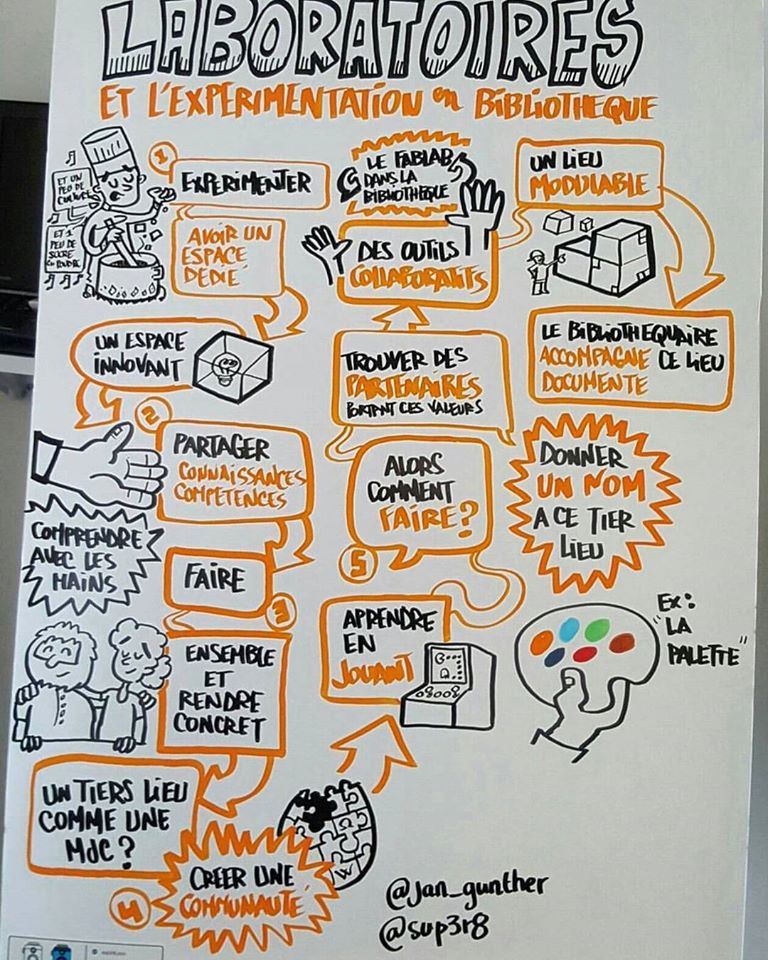 LABORATOIRES
ET L'EXPERIMENTATION en BIBLIOTHEQUE
ET UN
PEU DE
CULTURE
ET 1
PEU DE
SUCRE
EN POUDRE
1
EXPERIMENTER
AVOIR UN
ESPACE
DEDIÉ
UN ESPACE
INNOVANT
2
PARTAGER
CONNAISSANCES
COMPETENCES
COMPRENDRE
AVEC LES
MAINS
FAIRE
3
ENSEMBLE
ET
RENDRE
CONCRET
UN TIERS LIEU
COMME UNE
MdC ?
4
CREER UNE
COMMUNAUTÉ
APRENDRE
EN
JOUANT
5
ALORS
COMMENT
FAIRE?
TROUVER DES
PARTENAIRES
PORTANT CES VALEURS
DES OUTILS
COLLABORATIFS
LE FABLAB
DANS LA
BIBLIOTHEQUE
UN LIEU
MODULABLE
LE BIBLIOTHEQUAIRE
ACCOMPAGNE CE LIEU
DOCUMENTE
DONNER
UN NOM
A CE TIER
LIEU
EX:
"LA
PALETTE"
@jan_gunther
@sup3r8